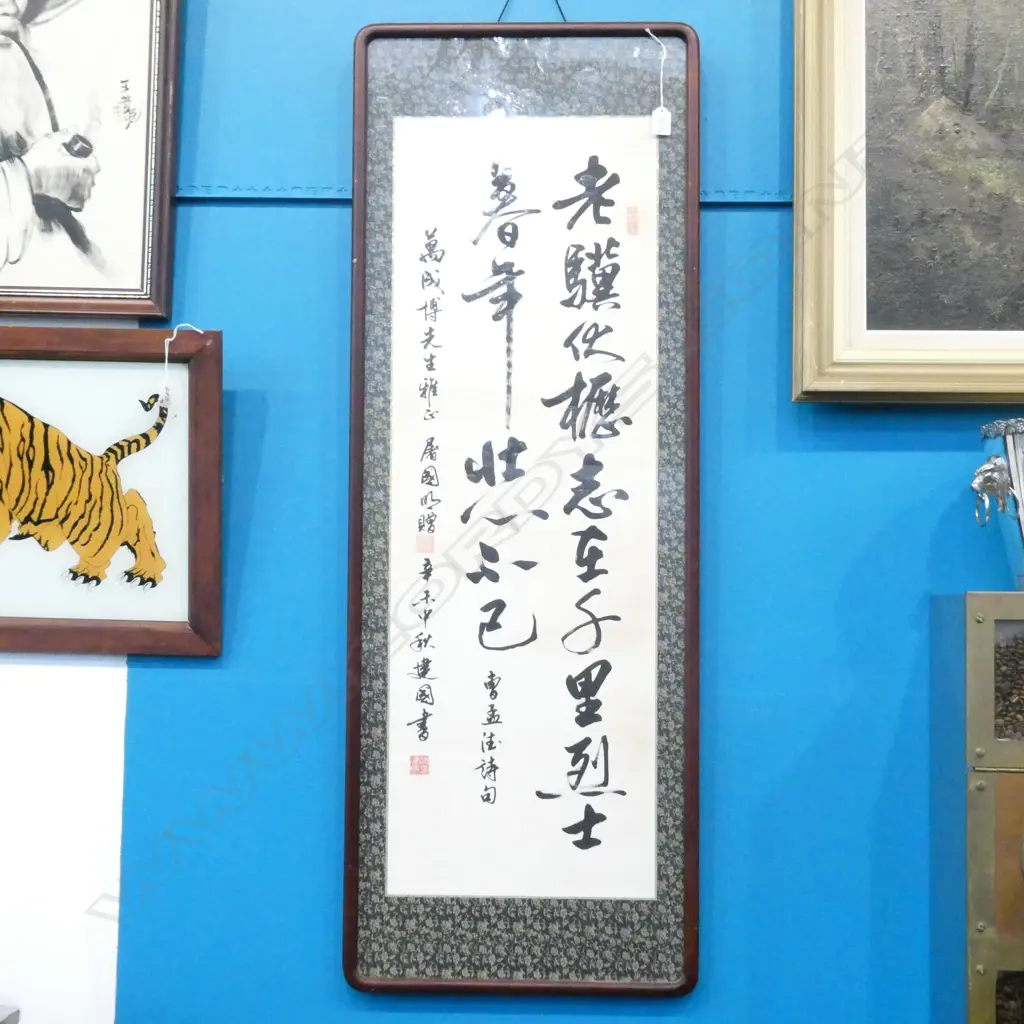 老驥伏櫪志在千里烈士
暮年壯心不已
曹孟德詩句
萬成博先生雅正 屠國明贈
辛未中秋建國書